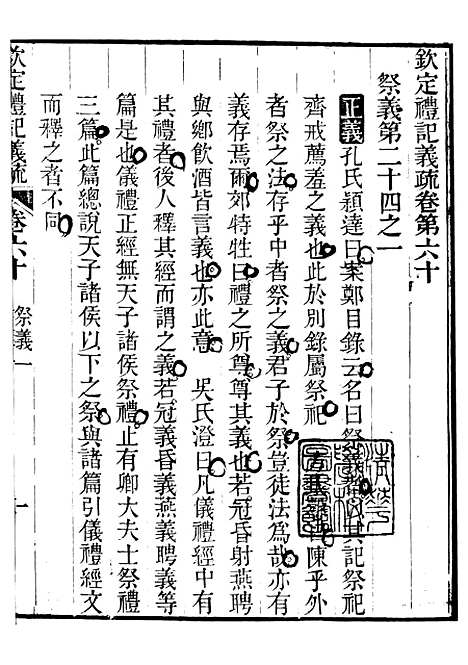 欽定禮記義疏卷第六十
祭義第二十四之一
正義孔氏穎達曰案鄭目錄云名曰祭義者以其記祭祀
齊戒薦羞之義也此於別錄屬祭祀
陳乎外
者祭之法存乎中者祭之義君子於祭豈徒法爲哉亦有
義存焉爾郊特牲曰禮之所尊尊其義也若冠昏射燕聘
與鄉飲酒皆言義也亦此意 吳氏澄曰凡儀禮經中有
其禮者後人釋其經而謂之義若冠義昏義燕義聘義等
篇是也儀禮正經無天子諸侯祭禮止有卿大夫士祭禮
三篇此篇總說天子諸侯以下之祭與諸篇引儀禮經文
而釋之者不同
欽定禮記義疏 卷六十 祭義一 一